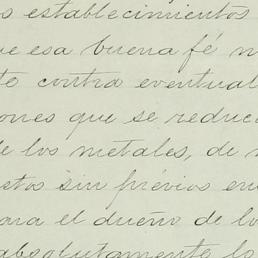 s establecimientos
ue esa buena fé n
to contra eventual
ones que se reduc
de los metales, de
stos sin prévios en
para el dueño de lo
absolutamente lo